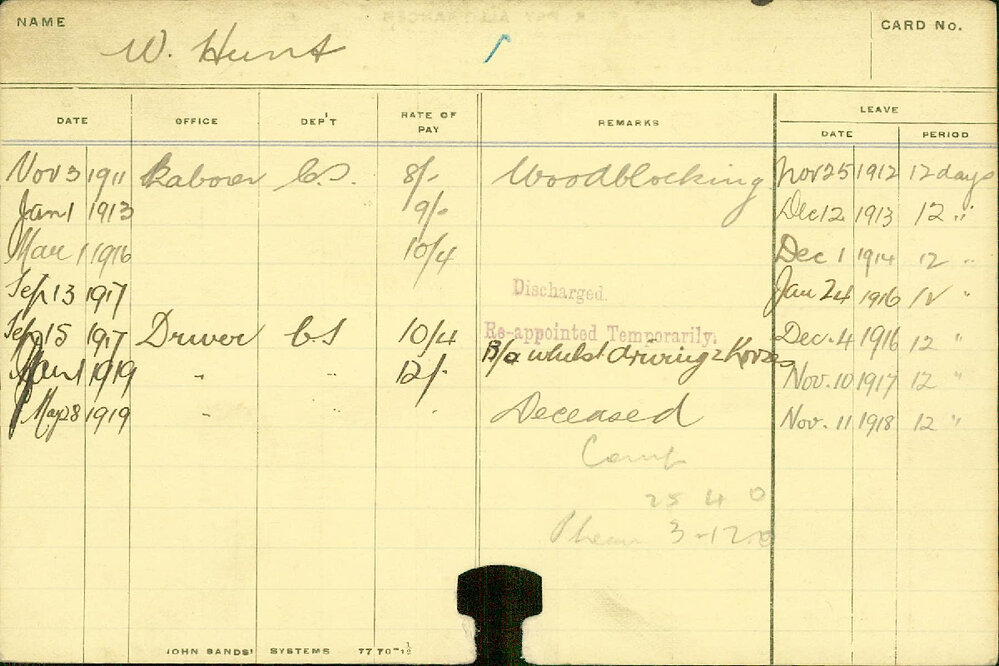 NAME W. Hunt CARD No.
DATE OFFICE DEP'T RATE OF PAY REMARKS LEAVE
DATE PERIOD
Nov 3 1911 Laborer C.S. 8/- Woodblocking Nov 25 1912 12 days
Jan 1 1913 9/- Dec 12 1913 12 "
Mar 1 1916 10/4 Dec 1 1914 12 "
Sep 13 1917 Discharged. Jan 24 1916 12 "
Sep 15 1917 Driver CS 10/4 Re-appointed Temporarily. Dec. 4 1916 12 "
whilst driving 2 Horses
Jan 1 1919 " " 12/- Nov. 10 1917 12 "
May 28 1919 " " " Deceased Nov. 11 1918 12 "
Comp
25 4 0
3-12-0
JOHN SANDS' SYSTEMS 7770